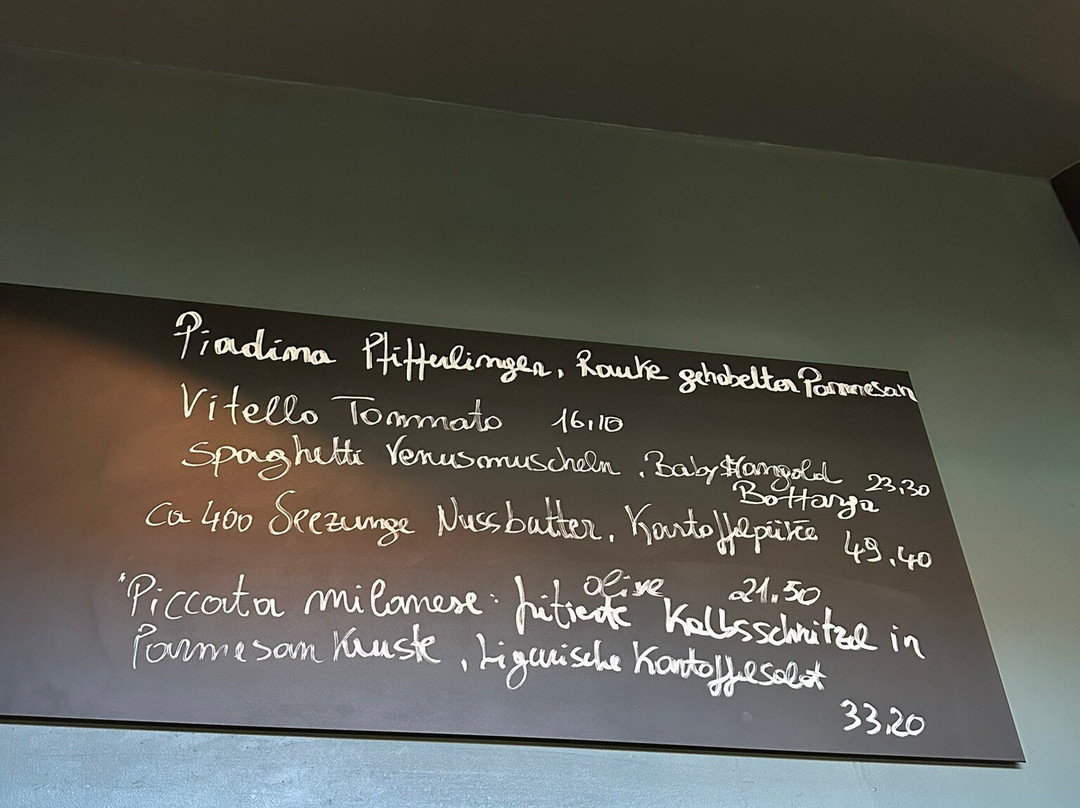 Piadina Pfifferlingen, Rauke gehobelter Parmesan
Vitello Tonnato 16,10
Spaghetti Venusmuscheln, Baby Mangold 23,30
Bottarga
ca 400 Seezunge Nussbutter, Kartoffelpüree 49,40
olive 21,50
Piccata milanese: fritierte Kalbsschnitzel in
Parmesan Kruste, Ligurische Kartoffelsalat
33,20